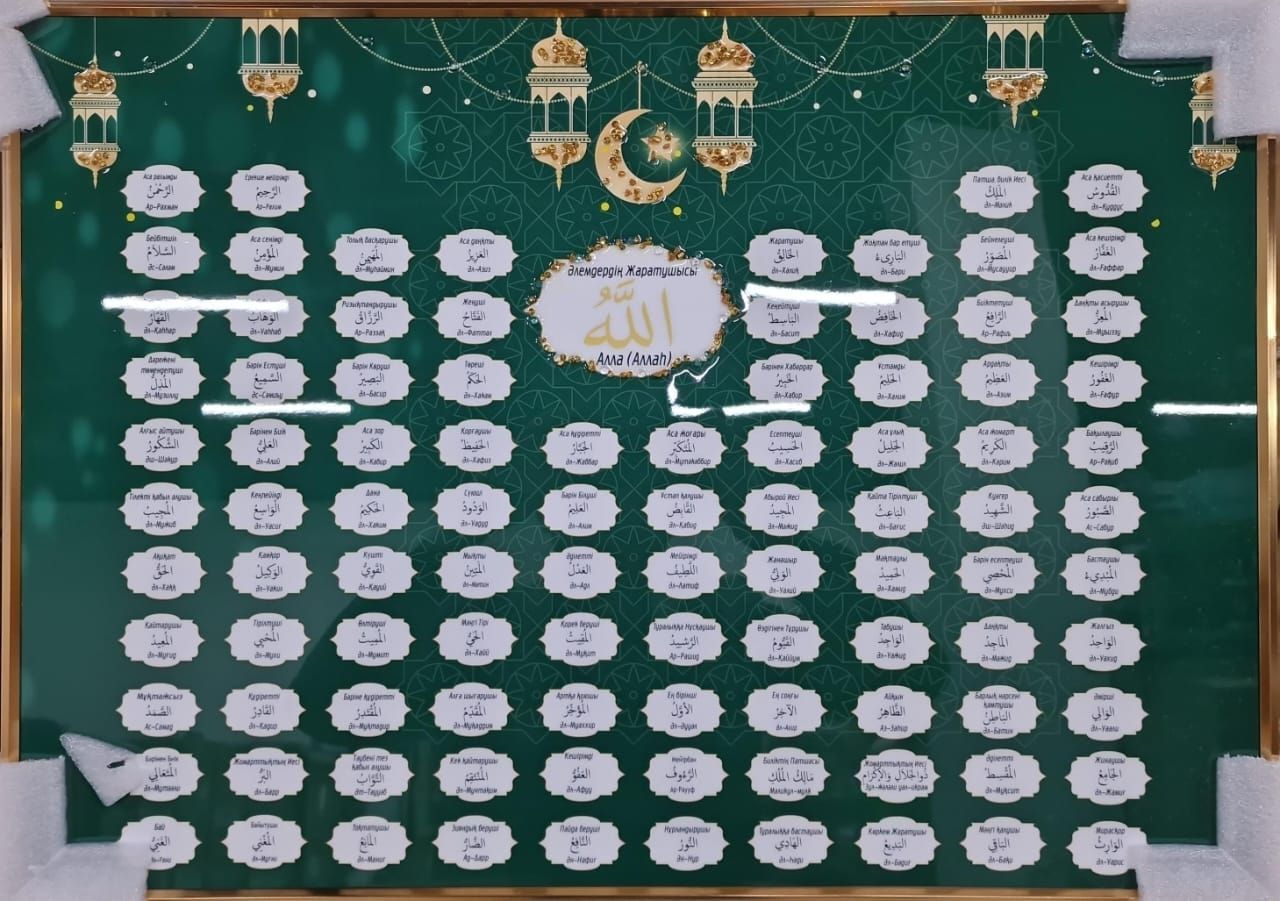 Аса рахымды
الرَّحْمَنُ
Ар-Рахман
Ерекше мейірімді
الرَّحِيمُ
Ар-Рахим
Патша, билік Иесі
الْمَلِكُ
Әл-Малик
Аса қасиетті
الْقُدُّوسُ
Әл-Құддус
Бейбітшіл
السَّلَامُ
Әс-Салам
Аса сенімді
الْمُؤْمِنُ
Әл-Мумин
Толық басқарушы
الْمُهَيْمِنُ
Әл-Муһаймин
Аса даңқты
الْعَزِيزُ
Әл-Азиз
Әлемдердің Жаратушысы
اللَّهُ
Алла (Аллаһ)
Жаратушы
الْخَالِقُ
Әл-Халиқ
Жоқтан бар етуші
الْبَارِىءُ
Әл-Бари
Бейнелеуші
الْمُصَوِّرُ
Әл-Мусаууир
Аса кешірімді
الْغَفَّارُ
Әл-Ғаффар
الْقَهَّارُ
Әл-Қаһһар
الْوَهَّابُ
Әл-Уаһһаб
Ризықтандырушы
الرَّزَّاقُ
Ар-Раззақ
Жеңуші
الْفَتَّاحُ
Әл-Фаттах
Кеңейтуші
الْبَاسِطُ
Әл-Басит
الْخَافِضُ
Әл-Хафид
Биіктетуші
الرَّافِعُ
Ар-Рафиъ
Даңқты асырушы
الْمُعِزُّ
Әл-Муъиззу
Дәрежені төмендетуші
الْمُذِلُّ
Әл-Музиллу
Бәрін Естуші
السَّمِيعُ
Әс-Самиъу
Бәрін Көруші
الْبَصِيرُ
Әл-Басир
Төреші
الْحَكَمُ
Әл-Хакам
Бәрінен Хабардар
الْخَبِيرُ
Әл-Хабир
Ұстамды
الْحَلِيمُ
Әл-Халим
Ардақты
الْعَظِيمُ
Әл-Азим
Кешірімді
الْغَفُورُ
Әл-Ғафур
Алғыс айтушы
الشَّكُورُ
Әш-Шакур
Бәрінен Биік
الْعَلِيُّ
Әл-Алий
Аса зор
الْكَبِيرُ
Әл-Кабир
Қорғаушы
الْحَفِيظُ
Әл-Хафиз
Аса құдіретті
الْجَبَّارُ
Әл-Жаббар
Аса жоғары
الْمُتَكَبِّرُ
Әл-Мутакаббир
Есептеуші
الْحَسِيبُ
Әл-Хасиб
Аса ұлық
الْجَلِيلُ
Әл-Жалил
Аса жомарт
الْكَرِيمُ
Әл-Карим
Бақылаушы
الرَّقِيبُ
Ар-Рақиб
Тілекті қабыл алушы
الْمُجِيبُ
Әл-Мужиб
Кеңпейілді
الْوَاسِعُ
Әл-Уасиғ
Дана
الْحَكِيمُ
Әл-Хаким
Сүюші
الْوَدُودُ
Әл-Уадуд
Бәрін Білуші
الْعَلِيمُ
Әл-Алим
Ұстап қалушы
الْقَابِضُ
Әл-Қабид
Абырой Иесі
الْمَجِيدُ
Әл-Мажид
Қайта Тірілтуші
الْبَاعِثُ
Әл-Бағис
Куәгер
الشَّهِيدُ
Әш-Шаһид
Аса сабырлы
الصَّبُورُ
Ас-Сабур
Ақиқат
الْحَقُّ
Әл-Хаққ
Қамқор
الْوَكِيلُ
Әл-Уакил
Күшті
الْقَوِيُّ
Әл-Қауий
Мықты
الْمَتِينُ
Әл-Матин
Әділетті
الْعَدْلُ
Әл-Адл
Мейірімді
اللَّطِيفُ
Әл-Латиф
Жанашыр
الْوَلِيُّ
Әл-Уалий
Мақтаулы
الْحَمِيدُ
Әл-Хамид
Бәрін есептеуші
الْمُحْصِي
Әл-Мухси
Бастаушы
الْمُبْدِيءُ
Әл-Мубди
Қайтарушы
الْمُعِيدُ
Әл-Муғид
Тірілтуші
الْمُحْيِي
Әл-Мухи
Өлтіруші
الْمُمِيتُ
Әл-Мумит
Мәңгі Тірі
الْحَيُّ
Әл-Хайй
Қорек беруші
الْمُقِيتُ
Әл-Муқит
Туралыққа Нұсқаушы
الرَّشِيدُ
Ар-Рашид
Өздігінен Тұрушы
الْقَيُّومُ
Әл-Қаййум
Табушы
الْوَاجِدُ
Әл-Уажид
Даңқты
الْمَاجِدُ
Әл-Мажид
Жалғыз
الْوَاحِدُ
Әл-Уахид
Мұқтажсыз
الصَّمَدُ
Ас-Самад
Құдіретті
الْقَادِرُ
Әл-Қадир
Бәріне құдіретті
الْمُقْتَدِرُ
Әл-Муқтадир
Алға шығарушы
الْمُقَدِّمُ
Әл-Муқаддим
Артқа қоюшы
الْمُؤَخِّرُ
Әл-Муаххир
Ең бірінші
الْأَوَّلُ
Әл-Әууал
Ең соңғы
الْآخِرُ
Әл-Ахир
Айқын
الظَّاهِرُ
Аз-Заһир
Барлық нәрсені қамтушы
الْبَاطِنُ
Әл-Батин
Әмірші
الْوَالِي
Әл-Уаали
Бәрінен Биік
الْمُتَعَالِي
Әл-Мутаали
Жомарттықтың Иесі
الْبَرُّ
Әл-Барр
Тәубені тез қабыл алушы
التَّوَّابُ
Әт-Тауаб
Кек қайтарушы
الْمُنْتَقِمُ
Әл-Мунтақим
Кешірімді
الْعَفُوُّ
Әл-Афуу
мейірбан
الرَّءُوفُ
Ар-Рауф
Биліктің Патшасы
مَالِكُ الْمُلْكِ
Маликул-мулк
Жомарттықтың Иесі
ذُوالْجَلَالِ وَالْإِكْرَامِ
Зул-Жалали уал-икрам
Әділетті
الْمُقْسِطُ
Әл-Муқсит
Жинаушы
الْجَامِعُ
Әл-Жамиғ
Бай
الْغَنِيُّ
Байытушы
الْمُغْنِي
Әл-Муғни
Тоқтатушы
الْمَانِعُ
Әл-Маниғ
Зияндық беруші
الضَّارُّ
Ад-Дарр
Пайда беруші
النَّافِعُ
Ән-Нафиғ
Нұрландырушы
النُّورُ
Ән-Нур
Туралыққа бастаушы
الْهَادِي
Әл-һади
Көркем Жаратушы
الْبَدِيعُ
Әл-Бадиғ
Мәңгі қалушы
الْبَاقِي
Әл-Бақи
Мирасқор
الْوَارِثُ
Әл-Уарис